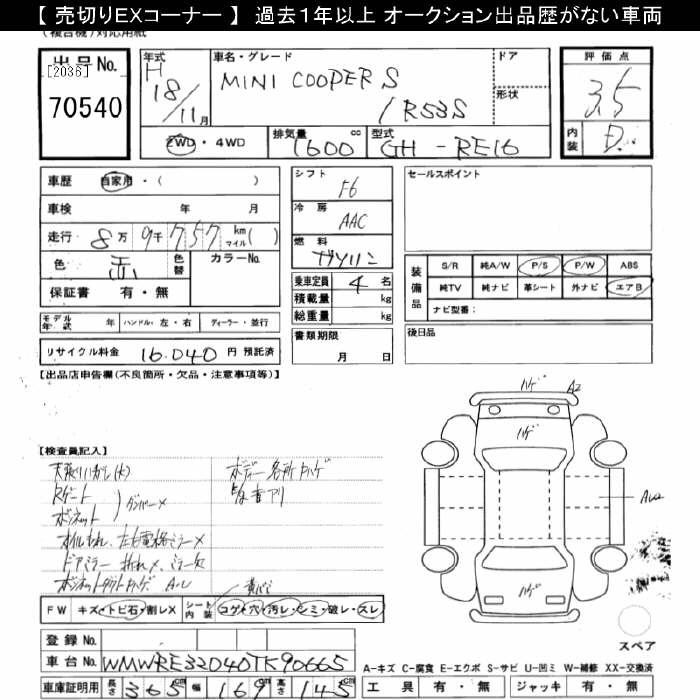 【 売切りEXコーナー 】 過去1年以上 オークション出品歴がない車両
(複合機)対応用紙
出品No.
[2036]
70540
年式
H
18/11月
車名・グレード
MINI COOPER S
/R53S
ドア
形状
2WD ・ 4WD
排気量 cc
1600
型式
GH-RE16
評価点
3.5
内装
D
車歴 自家用・( )
車検 年 月
走行 8万9千757 km マイル( )
色 赤 色替 カラーNo.
保証書 有・無
シフト
F6
冷房
AAC
燃料
ガソリン
乗車定員 4 名
積載量 kg
総重量 kg
書類期限
月 日
セールスポイント
装備品
S/R 純A/W P/S P/W ABS
純TV 純ナビ 革シート 外ナビ エアB
ナビ型番:
後日品
モデル年式 年 ハンドル・左・右 ディーラー・並行
リサイクル料金 16.040 円 預託済
【出品店申告欄(不良箇所・欠品・注意事項等)】
【検査員記入】
Rゲート
ボンネット
ダンパー×
オイルもれ、左右電格ミラー×
ドアミラー
ボディー各所
ハゲ A2
ハゲ
ハゲ
FW キズ・トビ石・割レX シート内装 コゲ・穴・汚レ・シミ・破レ・スレ
登録No.
車台No. WMWRE32040TK90665
車庫証明用 長さ 365 cm 幅 169 cm 高さ 145 cm
スペア
A-キズ C-腐食 E-エクボ S-サビ U-凹ミ W-補修 XX-交換済
工具 有・無 ジャッキ 有・無